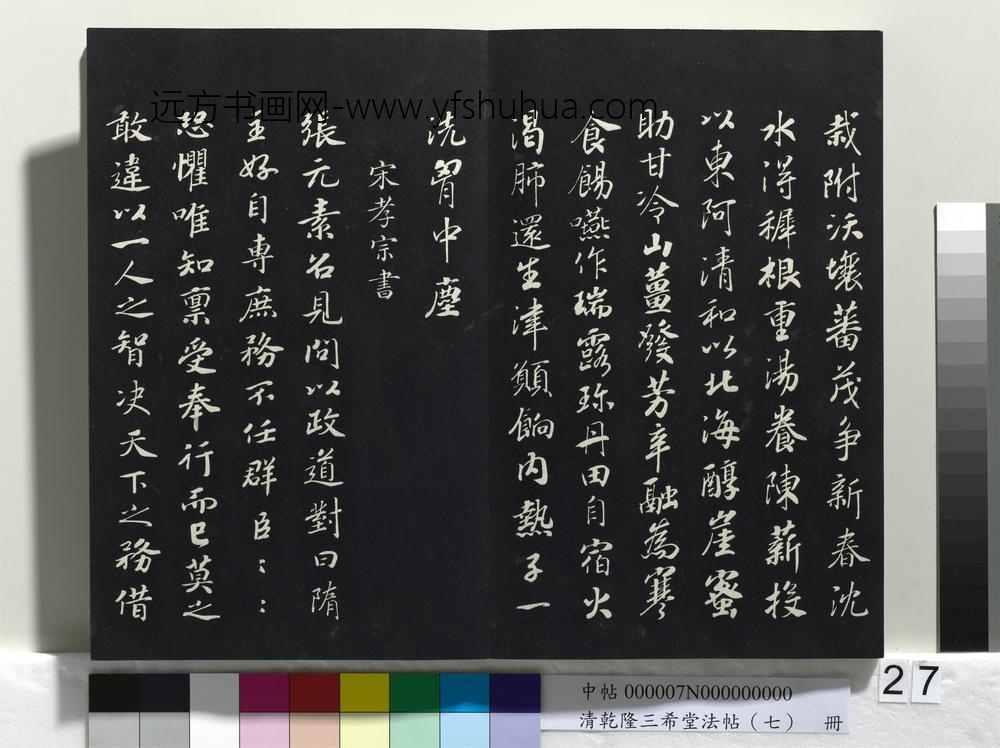 栽附沃壤蕃茂争新春沈
水得穉根重湯養陳薪投
以東阿清和以北海醇崖蜜
助甘冷山薑發芳辛融為寒
食餳嚥作瑞露珎丹田自宿火
渴肺還生津願餉内熱子一
洗胷中塵
宋孝宗書
張元素召見問以政道對曰隋
主好自専庶務不任群臣:::
恐懼唯知禀受奉行而已莫之
敢違以一人之智决天下之務借
远方书画网-www.yfshuhua.com
27
中帖 000007N000000000
清乾隆三希堂法帖（七） 冊